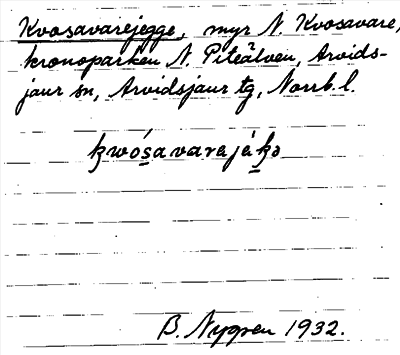 Kvosavarejegge, myr N. Kvosavare,
kronoparken N. Piteälven, Arvids-
jaur sn, Arvidsjaur tg, Norrb. l.
ḳwósavarajáḳə
B. Nygren 1932.